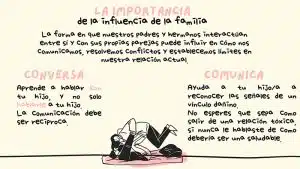 LA IMPORTANCIA
de la influencia de la familia
La forma en que nuestros padres y hermanos interactúan
entre sí y con sus propias parejas puede influir en cómo nos
comunicamos, resolvemos conflictos y establecemos límites en
nuestra relación actual
CONVERSA
Aprende a hablar con
tu hijo, y no solo
hablarle a tu hijo.
La comunicación debe
ser recíproca
COMUNICA
Ayuda a tu hijo/a a
reconocer las señales de un
vínculo dañino.
No esperes que sepa como
salir de una relación tóxica,
si nunca le hablaste de como
debería ser una saludable.